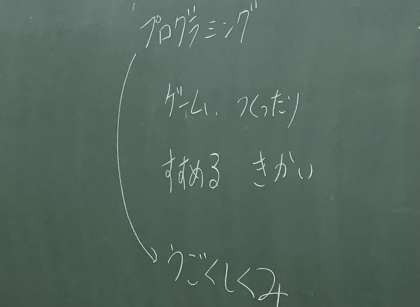 プログラミング
ゲーム、つくったり
すすめる きかい
うごくしくみ